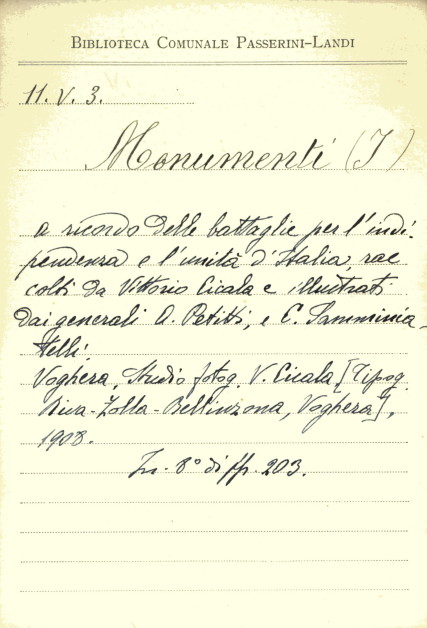 BIBLIOTECA COMUNALE PASSERINI-LANDI
11. V. 3.
Monumenti (I)
a ricordo delle battaglie per l'indi-
pendenza e l'unità d'Italia, rac
colti da Vittorio Cicala e illustrati
dai generali A. Petitti, e C. Samminia-
telli.
Voghera, Studio fotog. V. Cicala [Tipog.
Riva-Zolla-Bellinzona, Voghera],
1908.
In-8° di pp. 203.